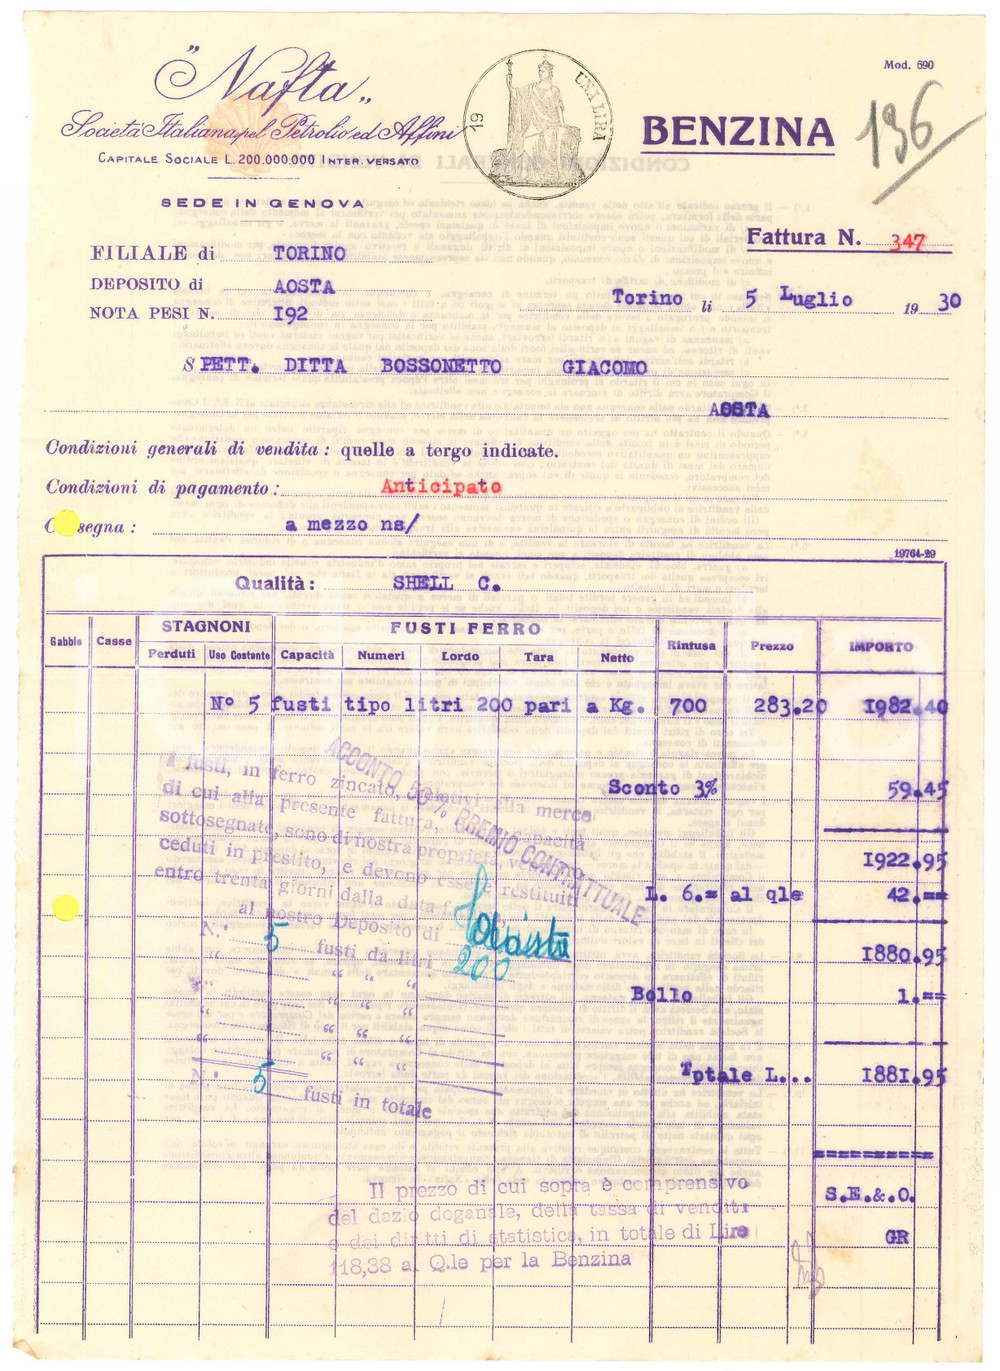 "Nafta"
Società Italiana pel Petrolio ed Affini
CAPITALE SOCIALE L. 200.000.000 INTER. VERSATO
SEDE IN GENOVA
19
UNA LIRA
Mod. 690
BENZINA
196
Fattura N. 347
FILIALE di TORINO
DEPOSITO di AOSTA
NOTA PESI N. I92
Torino li 5 Luglio 19 30
SPETT. DITTA BOSSONETTO GIACOMO
AOSTA
Condizioni generali di vendita: quelle a tergo indicate.
Condizioni di pagamento: Anticipato
C segna: a mezzo ns/
19764-29
Qualità: SHELL C.
Gabbie Casse STAGNONI FUSTI FERRO Rinfusa Prezzo IMPORTO
Perduti Uso Costante Capacità Numeri Lordo Tara Netto
N° 5 fusti tipo litri 200 pari a Kg. 700 283.20 I982.40
Sconto 3% 59.45
I922.95
L. 6.= al qle 42.==
I880.95
Bollo 1.==
Totale L... I88I.95
==========
S.E.&.O.
GR
ACCONTO 50% PREMIO CONTRATTUALE
I fusti, in ferro zincato, relativi alla merce
di cui alla presente fattura, capacità
sottosegnate, sono di nostra proprietà,
ceduti in prestito, e devono essere restituiti
entro trenta giorni dalla data
al nostro Deposito di Aosta
N.° 5 fusti da litri 200
" " "
" " "
" " "
N.° 5 fusti in totale
Il prezzo di cui sopra è comprensivo
del dazio doganale, della tassa di vendita
e dei diritti di statistica, in totale di Lire
118,38 al Q.le per la Benzina